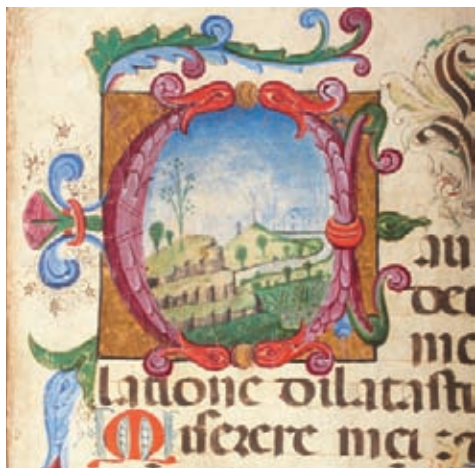 au
de
me
latione dilatasti
Miserere mei